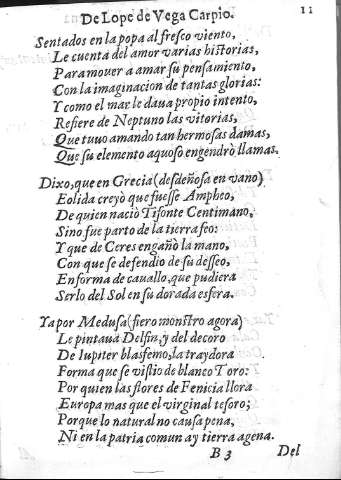 De Lope de Vega Carpio. 11
Sentados en la popa al fresco viento,
Le cuenta del amor varias historias,
Para mouer a amar su pensamiento,
Con la imaginacion de tantas glorias:
Y como el mar le daua propio intento,
Refiere de Neptuno las vitorias,
Que tuuo amando tan hermosas damas,
Que su elemento aquoso engendrò llamas.
Dixo, que en Grecia (desdeñosa en vano)
Eolida creyò que fuesse Ampheo,
De quien naciò Tifonte Centimano,
Sino fue parto de la tierra feo:
Y que de Ceres engañò la mano,
Con que se defendio de su desseo,
En forma de cauallo, que pudiera
Serlo del Sol en su dorada esfera.
Ya por Medusa (fiero monstro agora)
Le pintaua Delfin, y del decoro
De Iupiter blasfemo, la traydora
Forma que se vistio de blanco Toro:
Por quien las flores de Fenicia llora
Europa mas que el virginal tesoro;
Porque lo natural no causa pena,
Ni en la patria comun ay tierra agena.
B 3 Del